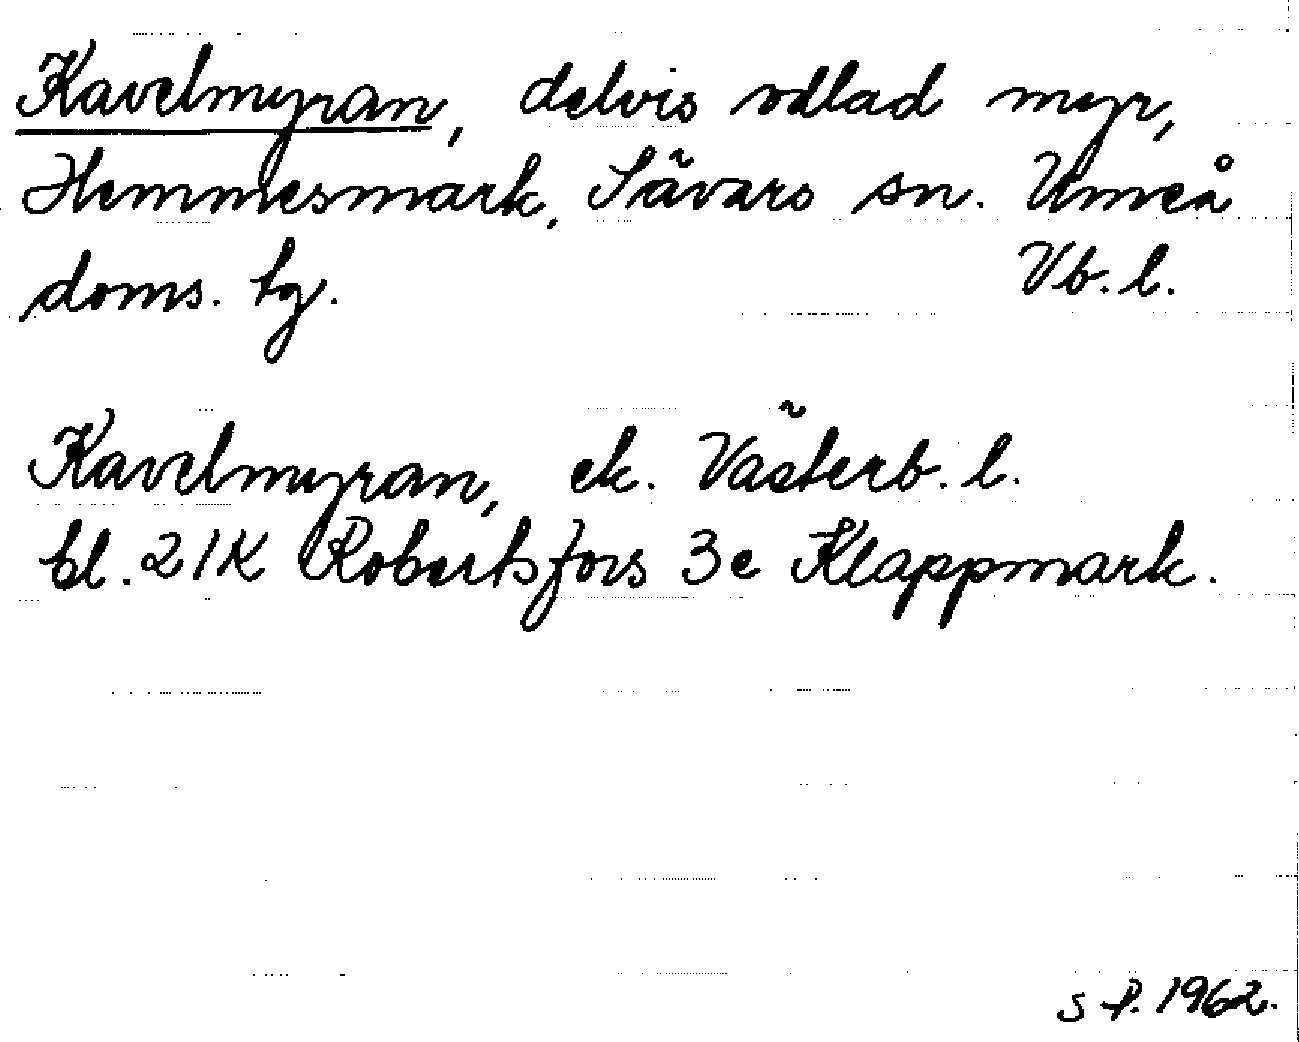 Kavelmyran, delvis odlad myr,
Hemmesmark, Sävars sn. Umeå
doms. tg. Vb. l.
Kavelmyran, ek. Västerb. l.
bl. 21K Robertsfors 3e Klappmark.
S P. 1962.